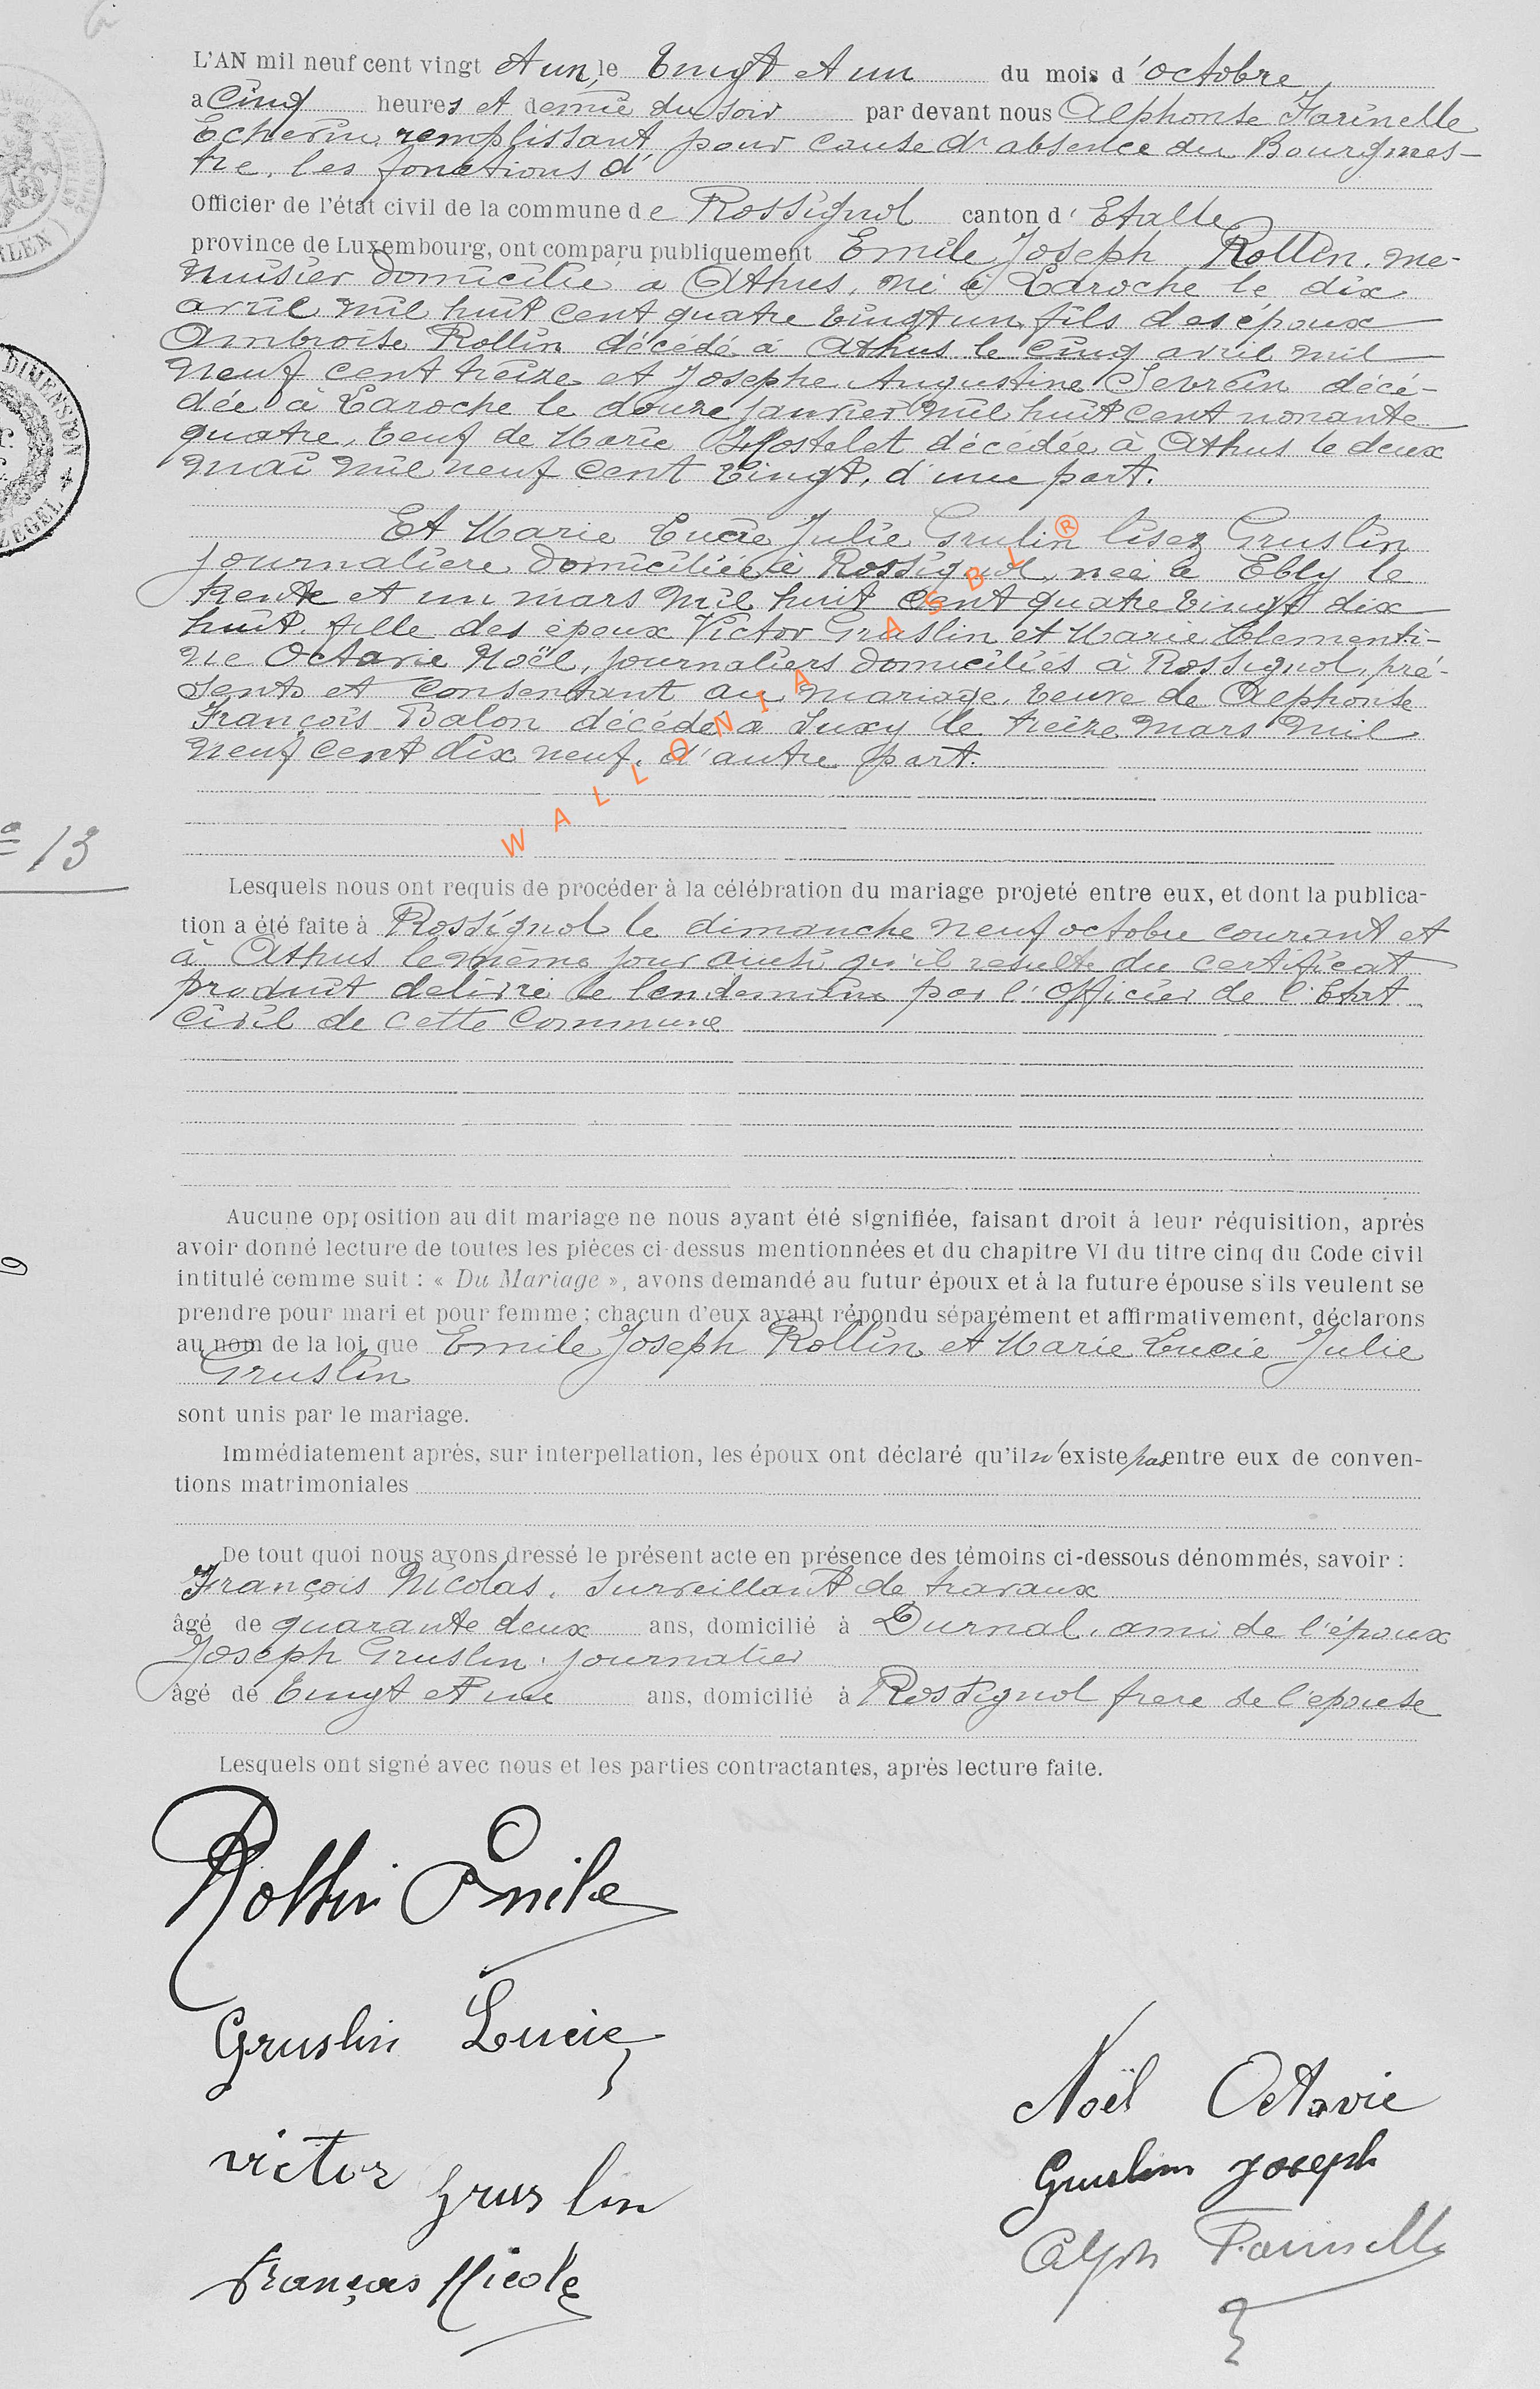 L'AN mil neuf cent vingt et un, le vingt et un du mois d'octobre,
a cinq heures et demie du soir par devant nous Alphonse Farinelle
Echevin remplissant pour cause d'absence du Bourgmes-
tre, les fonctions d'
Officier de l'état civil de la commune de Rossignol canton d'Etalle
province de Luxembourg, ont comparu publiquement Emile Joseph Rollin, me-
nuisier domicilié à Athus, né à Laroche le dix
avril mil huit cent quatre vingt un, fils des époux
Ambroise Rollin décédé à Athus le cinq avril mil
neuf cent treize et Josephe Augustine Sevrin décé-
dée à Laroche le douze janvier mil huit cent nonante
quatre, veuf de Marie Hostelet décédée à Athus le deux
mai mil neuf cent vingt, d'une part.
Et Marie Lucie Julie Grulin lisez Gruslin
journalière domiciliée à Rossignol, née à Ebly le
trente et un mars mil huit cent quatre vingt dix
huit, fille des époux Victor Gruslin et Marie Clementi-
ne Octavie Noël, journaliers domiciliés à Rossignol, pré-
sents et consentant au mariage, veuve de Alphonse
François Balon décédé à Suxy le treize mars mil
neuf cent dix neuf, d'autre part.
WALLONIA ASBL ®
13
Lesquels nous ont requis de procéder à la célébration du mariage projeté entre eux, et dont la publica-
tion a été faite à Rossignol le dimanche neuf octobre courant et
à Athus le même jour ainsi qu'il résulte du certificat
produit délivré le lendemain par l'Officier de l'Etat
civil de cette commune
Aucune opposition au dit mariage ne nous ayant été signifiée, faisant droit à leur réquisition, après
avoir donné lecture de toutes les pièces ci-dessus mentionnées et du chapitre VI du titre cinq du Code civil
intitulé comme suit : « Du Mariage », avons demandé au futur époux et à la future épouse s'ils veulent se
prendre pour mari et pour femme ; chacun d'eux ayant répondu séparément et affirmativement, déclarons
au nom de la loi que Emile Joseph Rollin et Marie Lucie Julie
Gruslin
sont unis par le mariage.
Immédiatement après, sur interpellation, les époux ont déclaré qu'il n'existe pas entre eux de conven-
tions matrimoniales
De tout quoi nous avons dressé le présent acte en présence des témoins ci-dessous dénommés, savoir :
François Nicolas, surveillant de travaux
âgé de quarante deux ans, domicilié à Durnal, ami de l'époux
Joseph Gruslin, journalier
âgé de vingt et un ans, domicilié à Rossignol frère de l'épouse
Lesquels ont signé avec nous et les parties contractantes, après lecture faite.
Rollin Emile
Gruslin Lucie
Noël Octavie
victor gruslin
Gruslin Joseph
Alph Farinelle
françois Nicolas